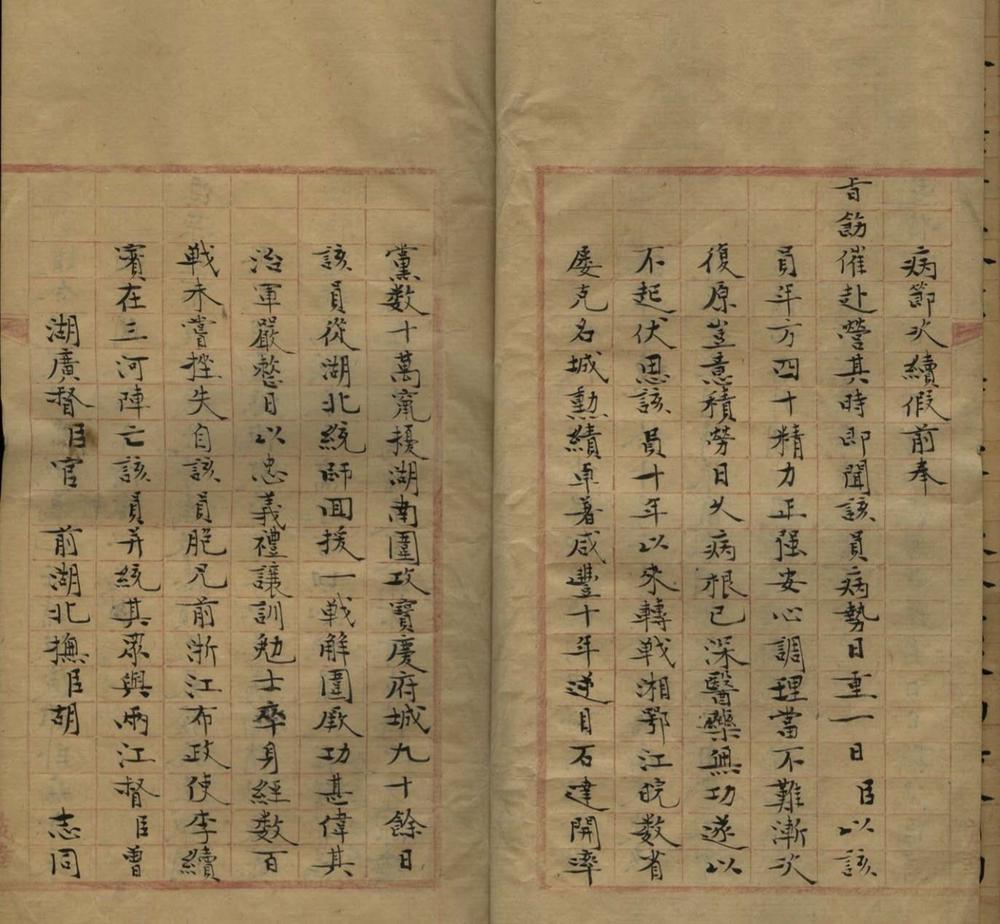 病節次續假前奉
旨飭催赴營其時即聞該員病勢日重一日臣以該
員年方四十精力正强安心調理當不難漸次
復原豈意積勞日久病根已深醫藥無功遂以
不起伏思該員十年以來轉戰湘鄂江皖数省
屡克名城勳績卓著咸豐十年逆目石達開率
黨数十萬竄擾湖南圍攻寶慶府城九十餘日
該員從湖北統師回援一戰解圍厥功甚偉其
治軍嚴整日以忠義禮讓訓勉士卒身經数百
戰未嘗挫失自該員胞兄前浙江布政使李續
賓在三河陣亡該員并統其眾與兩江督臣曾
湖廣督臣官 前湖北撫臣胡 志同